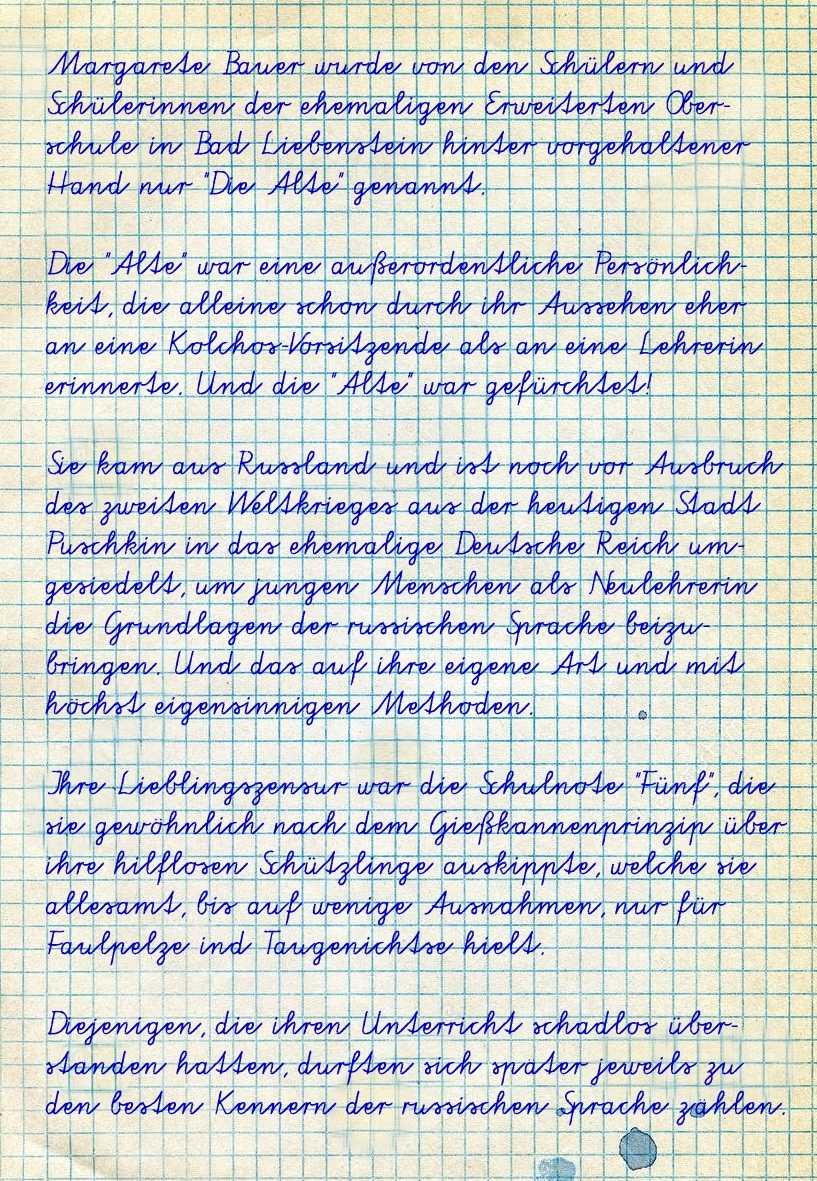 Margarete Bauer wurde von den Schülern und
Schülerinnen der ehemaligen Erweiterten Ober-
schule in Bad Liebenstein hinter vorgehaltener
Hand nur "Die Alte" genannt.
Die "Alte" war eine außerordentliche Persönlich-
keit, die alleine schon durch ihr Aussehen eher
an eine Kolchos-Vorsitzende als an eine Lehrerin
erinnerte. Und die "Alte" war gefürchtet!
Sie kam aus Russland und ist noch vor Ausbruch
des zweiten Weltkrieges aus der heutigen Stadt
Puschkin in das ehemalige Deutsche Reich um-
gesiedelt, um jungen Menschen als Neulehrerin
die Grundlagen der russischen Sprache beizu-
bringen. Und das auf ihre eigene Art und mit
höchst eigensinnigen Methoden.
Ihre Lieblingszensur war die Schulnote "Fünf", die
sie gewöhnlich nach dem Gießkannenprinzip über
ihre hilflosen Schützlinge auskippte, welche sie
allesamt, bis auf wenige Ausnahmen, nur für
Faulpelze ind Taugenichtse hielt.
Diejenigen, die ihren Unterricht schadlos über-
standen hatten, durften sich später jeweils zu
den besten Kennern der russischen Sprache zählen.